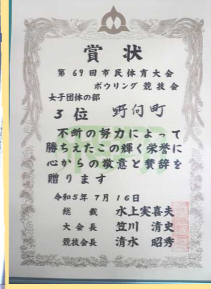 賞状
第69回市民体育大会
ボウリング競技会
女子団体の部
3位 野向町
不断の努力によって
勝ちえたこの輝く栄誉に
心からの敬意と賛辞を
贈ります
令和5年7月16日
総裁 水上実喜夫
大会長 笠川清史
競技会長 清水昭秀